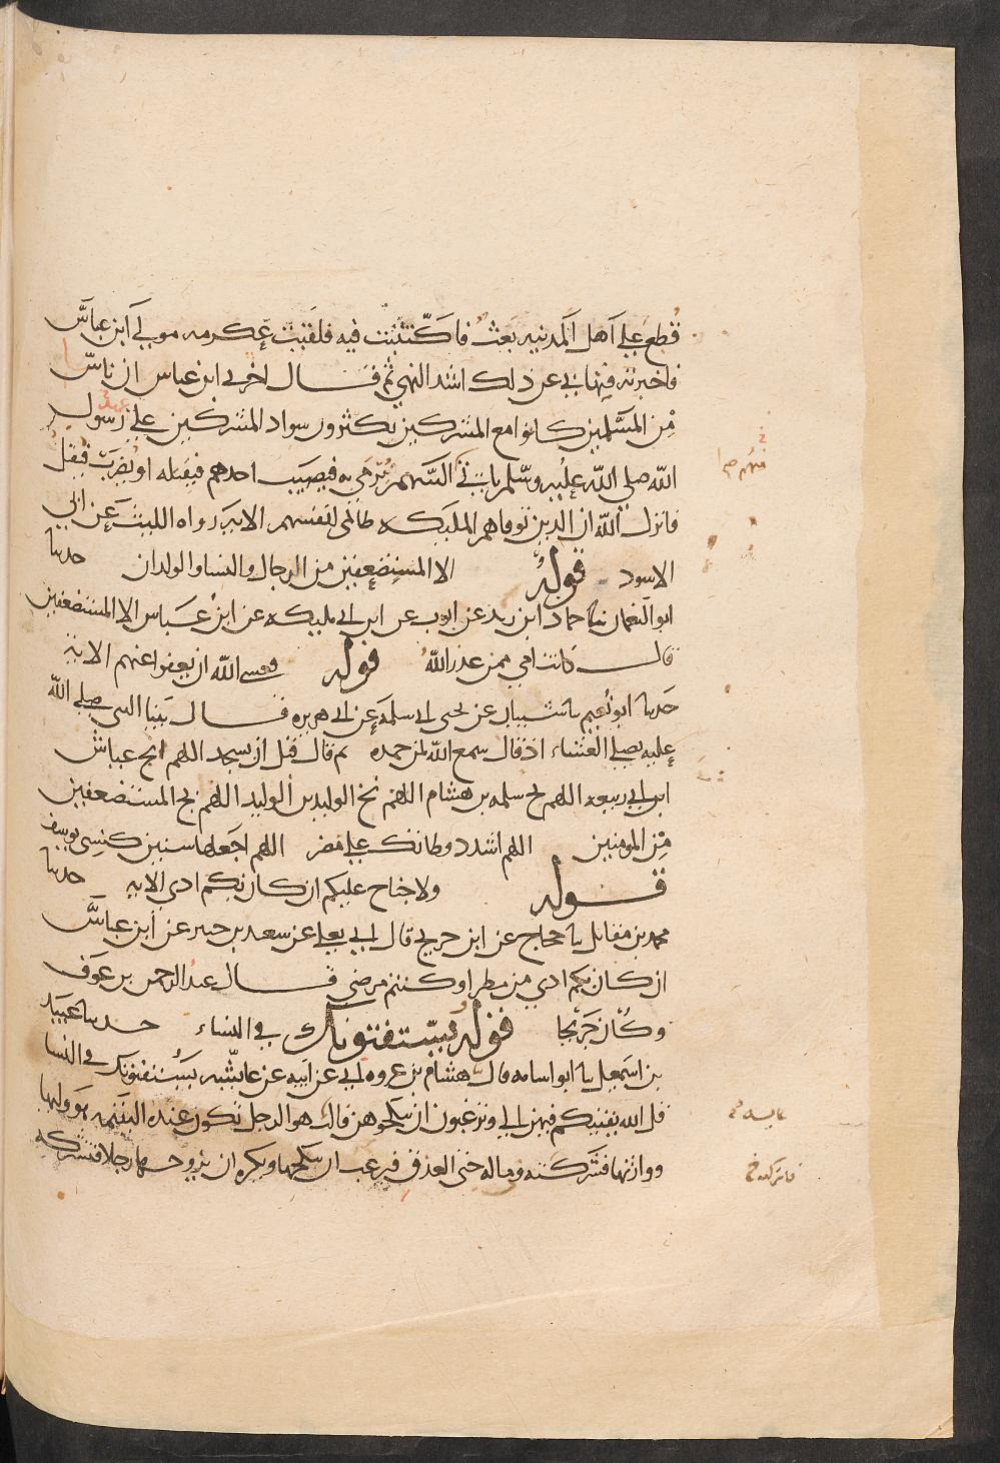 قطع علي اهل المدينه بعث فاكتتبت فيه فلقيت عكرمه مولي ابن عباس
فاخبرته فنهاني عن ذلك اشد النهي ثم قال اخبرني ابن عباس ان ناسا
من المسلمين كانوا مع المشركين يكثرون سواد المشركين علي عهد رسول
الله صلي الله عليه وسلم ياتي السهم يرمي به فيصيب احدهم فيقتله او يضرب فيقتل
فانزل الله ان الذين توفاهم المليكه ظالمي انفسهم الايه رواه الليث عن ابي
الاسود قوله الا المستضعفين من الرجال والنسا والولدان حدثنا
ابو النعمان ثنا حماد ابن زيد عن ايوب عن ابن ابي مليكه عن ابن عباس الا المستضعفين
قال كانت امي ممن عذر الله قوله فعسى الله ان يعفوا عنهم الايه
حدثنا ابو نعيم ثنا شيبان عن يحيى عن ابي سلمه عن ابي هريره قال بينا النبي صلي الله
عليه يصلي العشاء اذ قال سمع الله لمن حمده ثم قال قبل ان يسجد اللهم انج عياش
ابن ابي ربيعه اللهم نج سلمه بن هشام اللهم نج الوليد بن الوليد اللهم نج المستضعفين
من المومنين اللهم اشدد وطاتك علي مضر اللهم اجعلها سنين كسني يوسف
قوله ولا جناح عليكم ان كان بكم اذي الايه حدثنا
محمد بن مقاتل ثنا حجاج عن ابن جريج قال اخبرني يعلي عن سعيد بن جبير عن ابن عباس
ان كان بكم اذي من مطر او كنتم مرضي قال عبد الرحمن بن عوف
وكان جريحا قوله يستفتونك في النساء حدثنا عبيد
بن اسمعيل ثنا ابو اسامه قال هشام بن عروه اخبرني عن ابيه عن عائشه يستفتونك في النسا
قل الله يفتيكم فيهن الي وترغبون ان تنكحوهن قالت هو الرجل تكون عنده اليتيمه هو وليها
ووارثها فشركته في ماله حتي العذق فيرغب ان ينكحها ويكره ان يزوجها رجلا فتشركه
منهم
عايشه
فاشركته